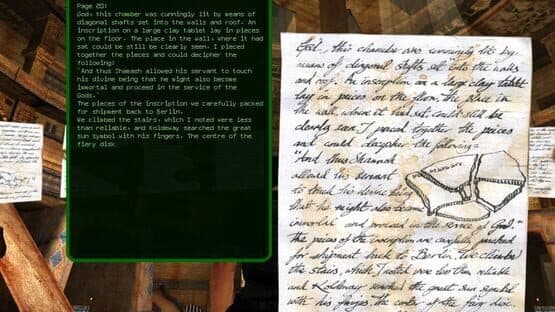 Page 20:
God, this chamber was cunningly lit by means of
diagonal shafts set into the walls and roof. An
inscription on a large clay tablet lay in pieces
on the floor. The place in the wall, where it had
sat could be still be clearly seen. I pieced
together the pieces and could decipher the
following:
"And thus Shamash allowed his servant to touch
his divine being that he might also become
immortal and proceed in the service of the
Gods."
The pieces of the inscription we carefully packed
for shipment back to Berlin.
We climbed the stairs, which I noted were less
than reliable, and Koldeway searched the great
sun symbol with his fingers. The centre of the
fiery disk
God, this chamber was cunningly lit by
means of diagonal shafts set into the walls
and roof. An inscription on a large clay tablet
lay in pieces on the floor, the place in
the wall, where it had sat could still be
clearly seen. I pieced together the pieces
and could decipher the following:
"And thus Shamash
allowed his servant
to touch his divine being
that he might also become
immortal and proceed in the service of God."
The pieces of the inscription are carefully packed
for shipment back to Berlin. We climbed
the stairs, which I noted were less than reliable
and Koldeway searched the great sun symbol
with his fingers. The center of the fiery disc.